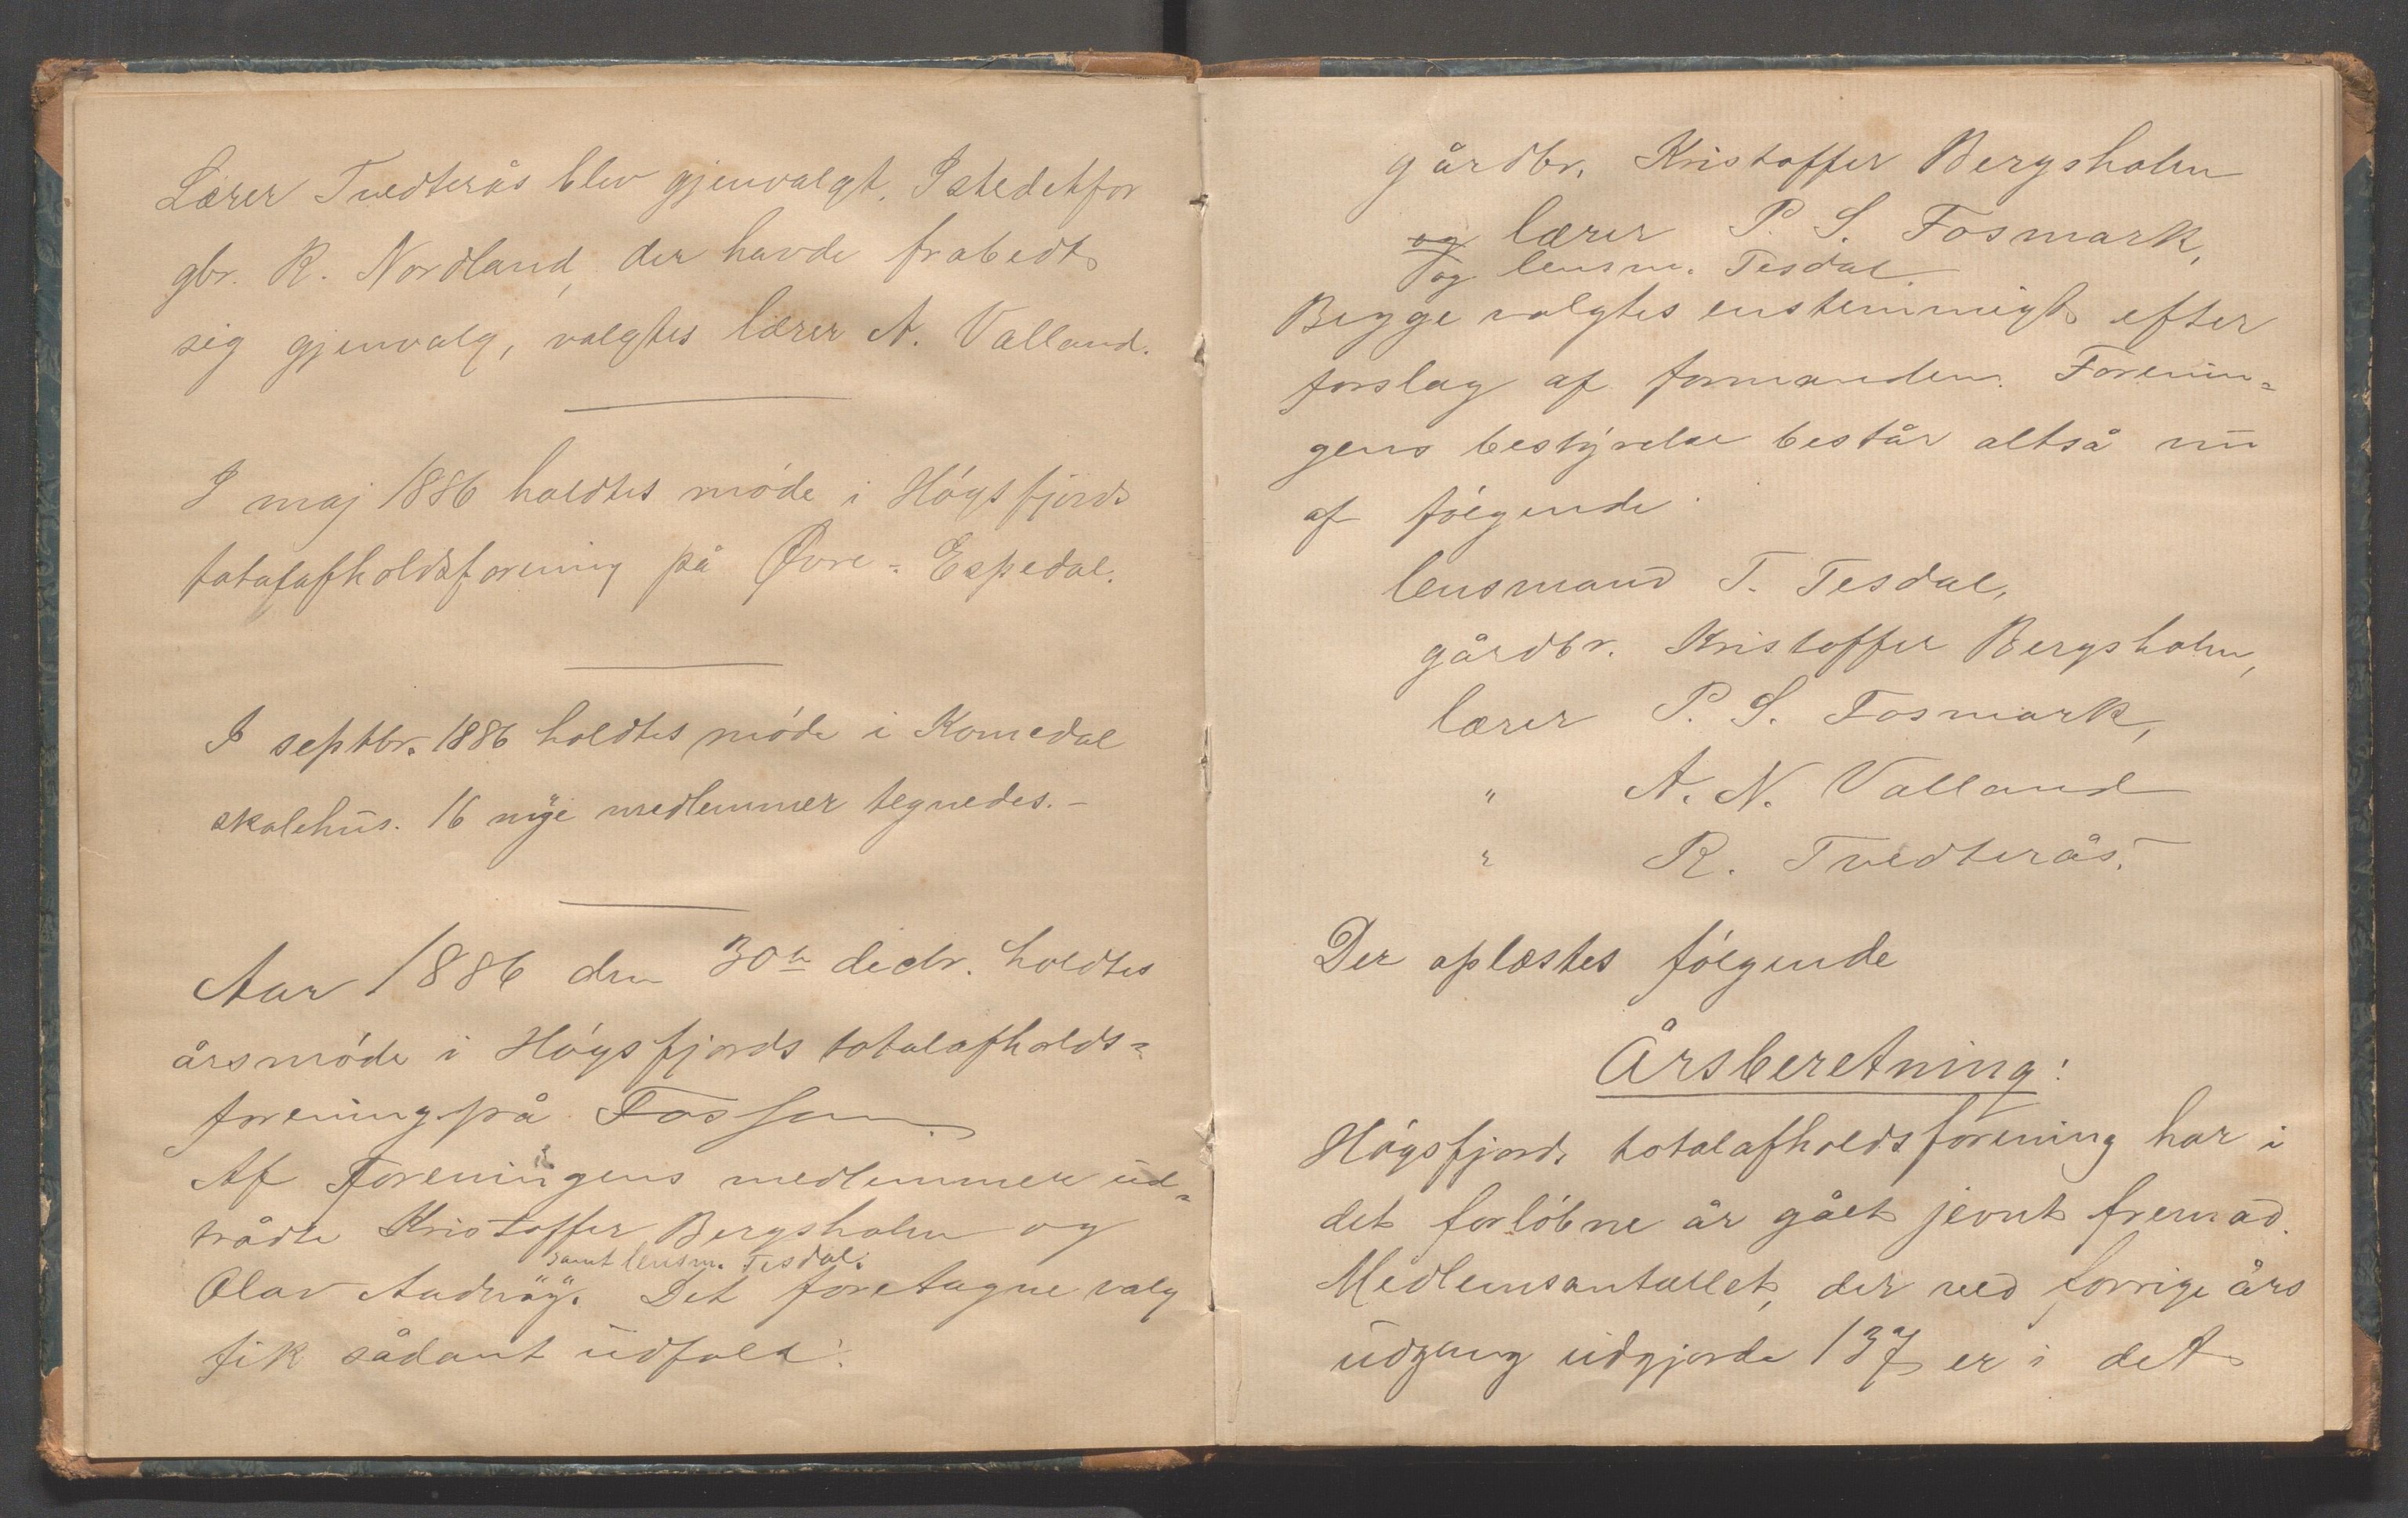 Lærer Tvedterås blev gjenvalgt. Istedetfor
gbr. R. Nordland, der havde frabedt
sig gjenvalg, valgtes lærer A. Valland.
I maj 1886 holdtes møde i Høgsfjords
totalafholdsforening på Øvre-Espedal.
I septbr. 1886 holdtes møde i Komedal
skolehus. 16 nye medlemmer tegnedes.-
Aar 1886 den 30te decbr. holdtes
årsmøde i Høgsfjords totalafholds=
forening på Fossan.
Af Foreningens medlemmer ud=
trådte Kristoffer Bergsholm og
samt lensm. Tesdal.
Olav Andrøy. Det foretagne valg
fik sådant udfald:
gårdbr. Kristoffer Bergsholm
og lærer P. S. Fosmark,
og lensm. Tesdal.
Begge valgtes enstemmigt efter
forslag af formanden. Forenin=
gens bestyrelse består altså nu
af følgende
lensmand T. Tesdal,
gårdbr. Kristoffer Bergsholm,
lærer P. S. Fosmark,
" A. N. Valland
" R. Tvedterås.
Der oplæstes følgende
Årsberetning:
Høgsfjords totalafholdsforening har i
det forløbne år gået jevnt fremad.
Medlemsantallet, der ved forrige års
udgang udgjorde 137 er i det